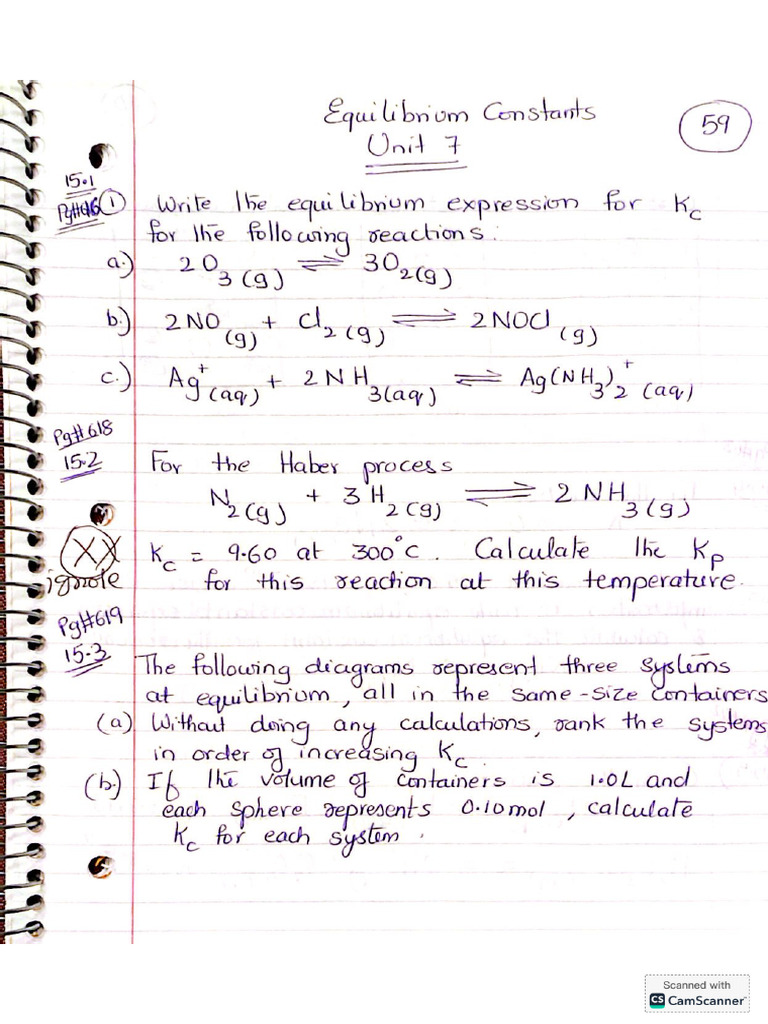 Equilibrium Constants
Unit 7
59
15.1
①
Write the equilibrium expression for Kc
for the following reactions:
a.) 2O₃(g) ⇌ 3O₂(g)
b.) 2NO(g) + Cl₂(g) ⇌ 2NOCl(g)
c.) Ag⁺(aq) + 2NH₃(aq) ⇌ Ag(NH₃)₂⁺(aq)
Pg#618
15.2 For the Haber process
N₂(g) + 3H₂(g) ⇌ 2NH₃(g)
XX Kc = 9.60 at 300°C. Calculate the Kp
ignore for this reaction at this temperature.
Pg#619
15.3 The following diagrams represent three systems
at equilibrium, all in the same-size containers
(a) Without doing any calculations, rank the systems
in order of increasing Kc.
(b.) If the volume of containers is 1.0L and
each sphere represents 0.10mol, calculate
Kc for each system.
Scanned with
CS CamScanner